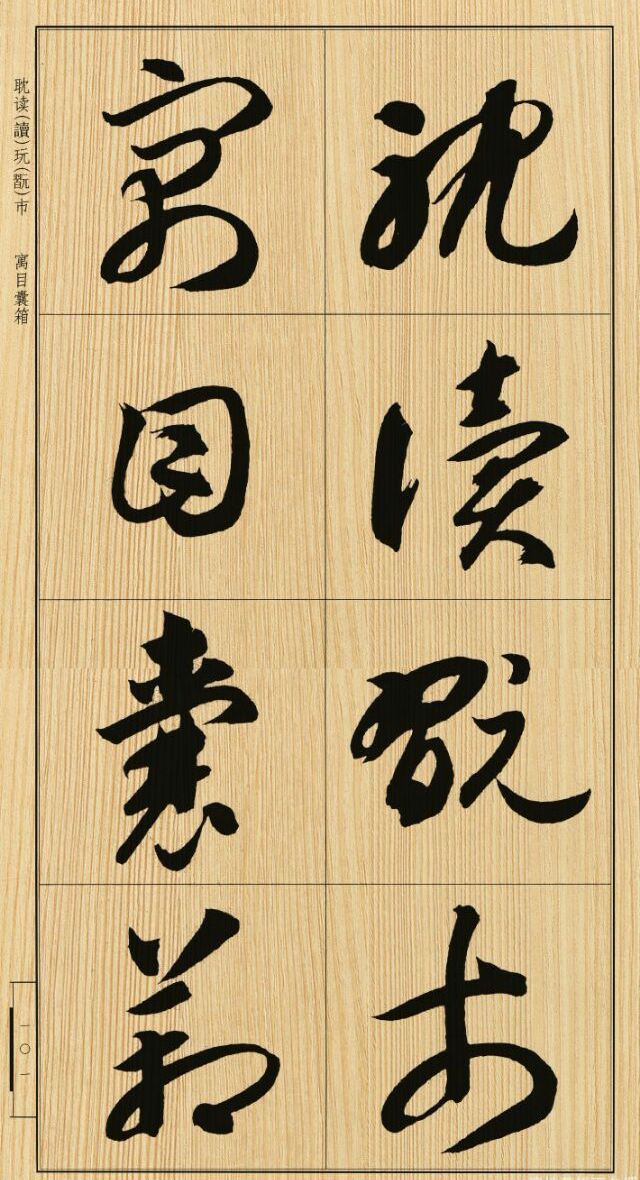 耽讀翫市
寓目囊箱
耽读(讀)玩(翫)市 寓目囊箱
一〇一